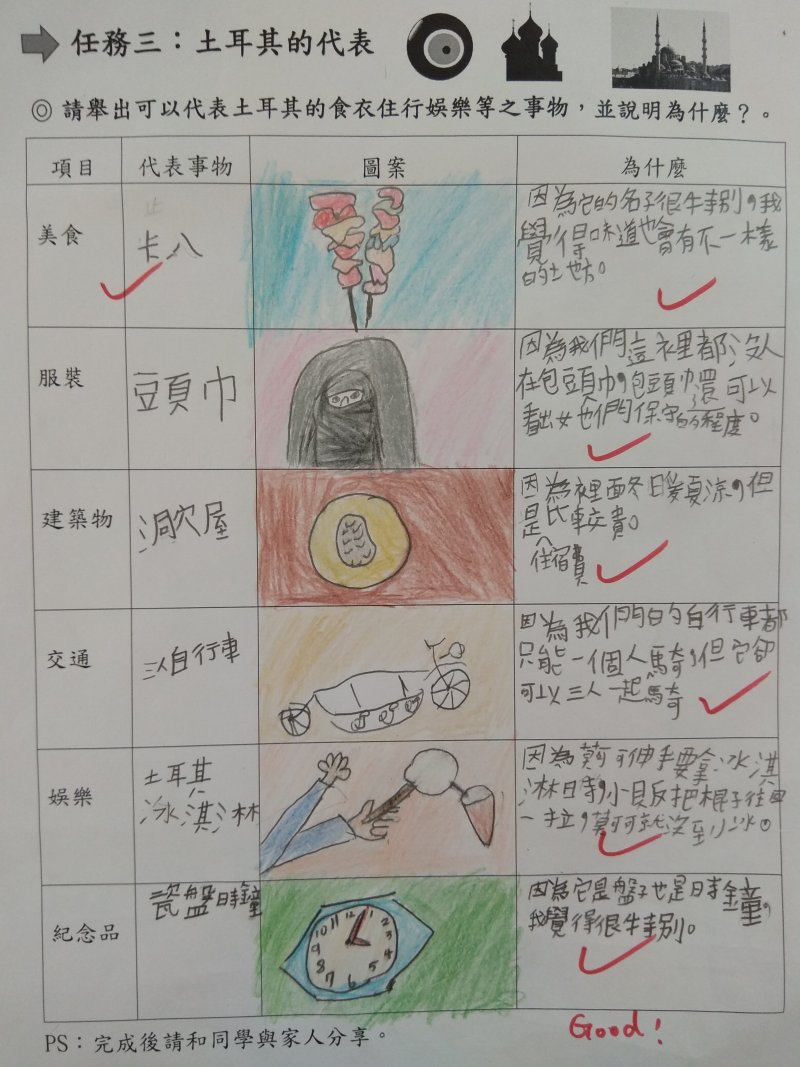 任務三：土耳其的代表
◎ 請舉出可以代表土耳其的食衣住行娛樂等之事物，並說明為什麼？。
項目 代表事物 圖案 為什麼
美食
卡八
因為它的名子很特別，我
覺得味道也會有不一樣
的地方。
服裝
頭巾
因為我們這裡都沒人
在包頭巾，包頭巾還可以
看出女也們保守的程度。
建築物
洞穴屋
因為裡面冬暖夏涼，但
是比較貴。
住宿費
交通
三人自行車
因為我們的自行車都
只能一個人騎，但它卻
可以三人一起騎
娛樂
土耳其
冰淇淋
因為莫可伸手要拿冰淇
淋時，小販把棍子往
一拉，莫可就沒到冰。
紀念品
瓷盤時鐘
12 1 2 3 4 5 6 7 8 9 10 11
因為它是盤子也是時鐘，
我覺得很特別。
Good!
PS：完成後請和同學與家人分享。